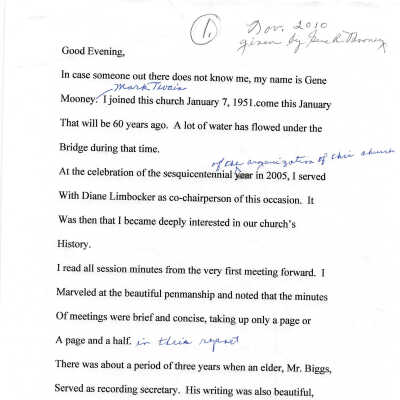 1.
Nov. 2010
given by Gene R. Mooney
Good Evening,
In case someone out there does not know me, my name is Gene
Mark Twain
Mooney. I joined this church January 7, 1951.come this January
That will be 60 years ago.  A lot of water has flowed under the
Bridge during that time.
of the organization of this church
At the celebration of the sesquicentennial year in 2005, I served
With Diane Limbocker as co-chairperson of this occasion.  It
Was then that I became deeply interested in our church's
History.
I read all session minutes from the very first meeting forward.  I
Marveled at the beautiful penmanship and noted that the minutes
Of meetings were brief and concise, taking up only a page or
A page and a half. in this report
There was about a period of three years when an elder, Mr. Biggs,
Served as recording secretary.  His writing was also beautiful,